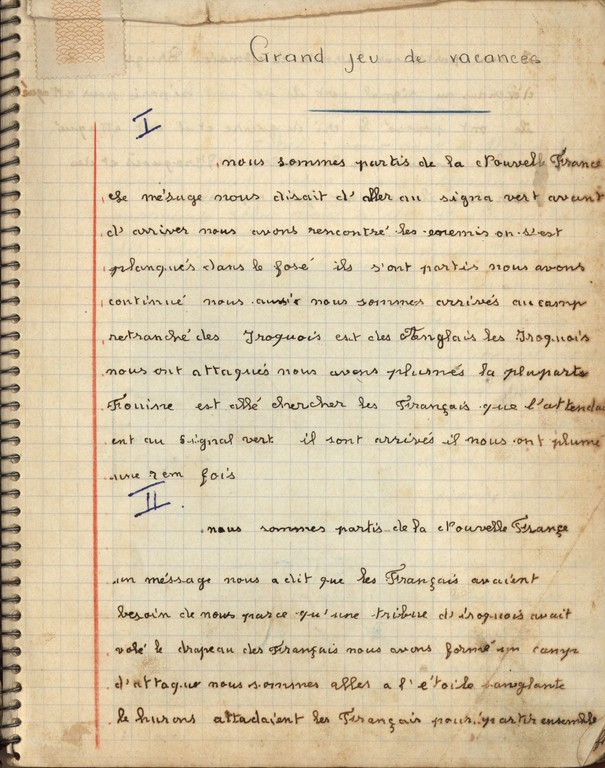 Grand jeu de vacances
I
nous sommes partis de la Nouvelle France
le mésage nous disait d'aller au signa vert avant
d'arriver nous avons rencontré les enemis on s'est
planqués dans le fosé ils s'ont partis nous avons
continué nous aussi nous sommes arrivés au camp
retranché des Iroquois est des Anglais les Iroquois
nous ont attaqués nous avons plusnés la pluparts
est allé chercher les Français que l'attendai
ent au signal vert il sont arrivés il nous ont plumé
une 2em fois
II
nous sommes partis de la Nouvelle France
un mésage nous a dit que les Français avaient
besoin de nous parce qu'une tribue d'iroquois avait
volé le drapeau des Français nous avons formé un camp
d'attaque nous sommes alles a l'étoile sanglante
le hurons attadaient les Français pour partir ensemble